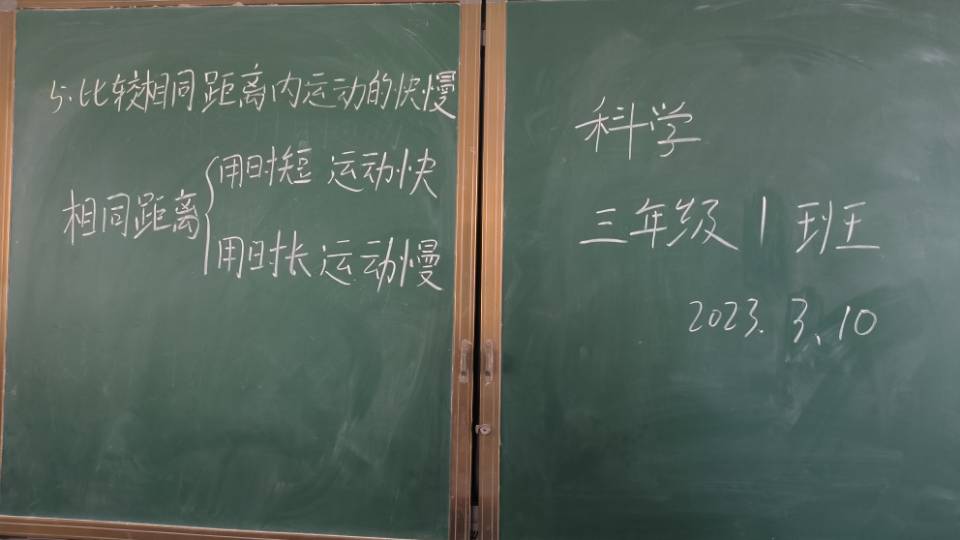 5.比较相同距离内运动的快慢
相同距离
用时短 运动快
用时长 运动慢
科学
三年级 1 班
2023.3.10